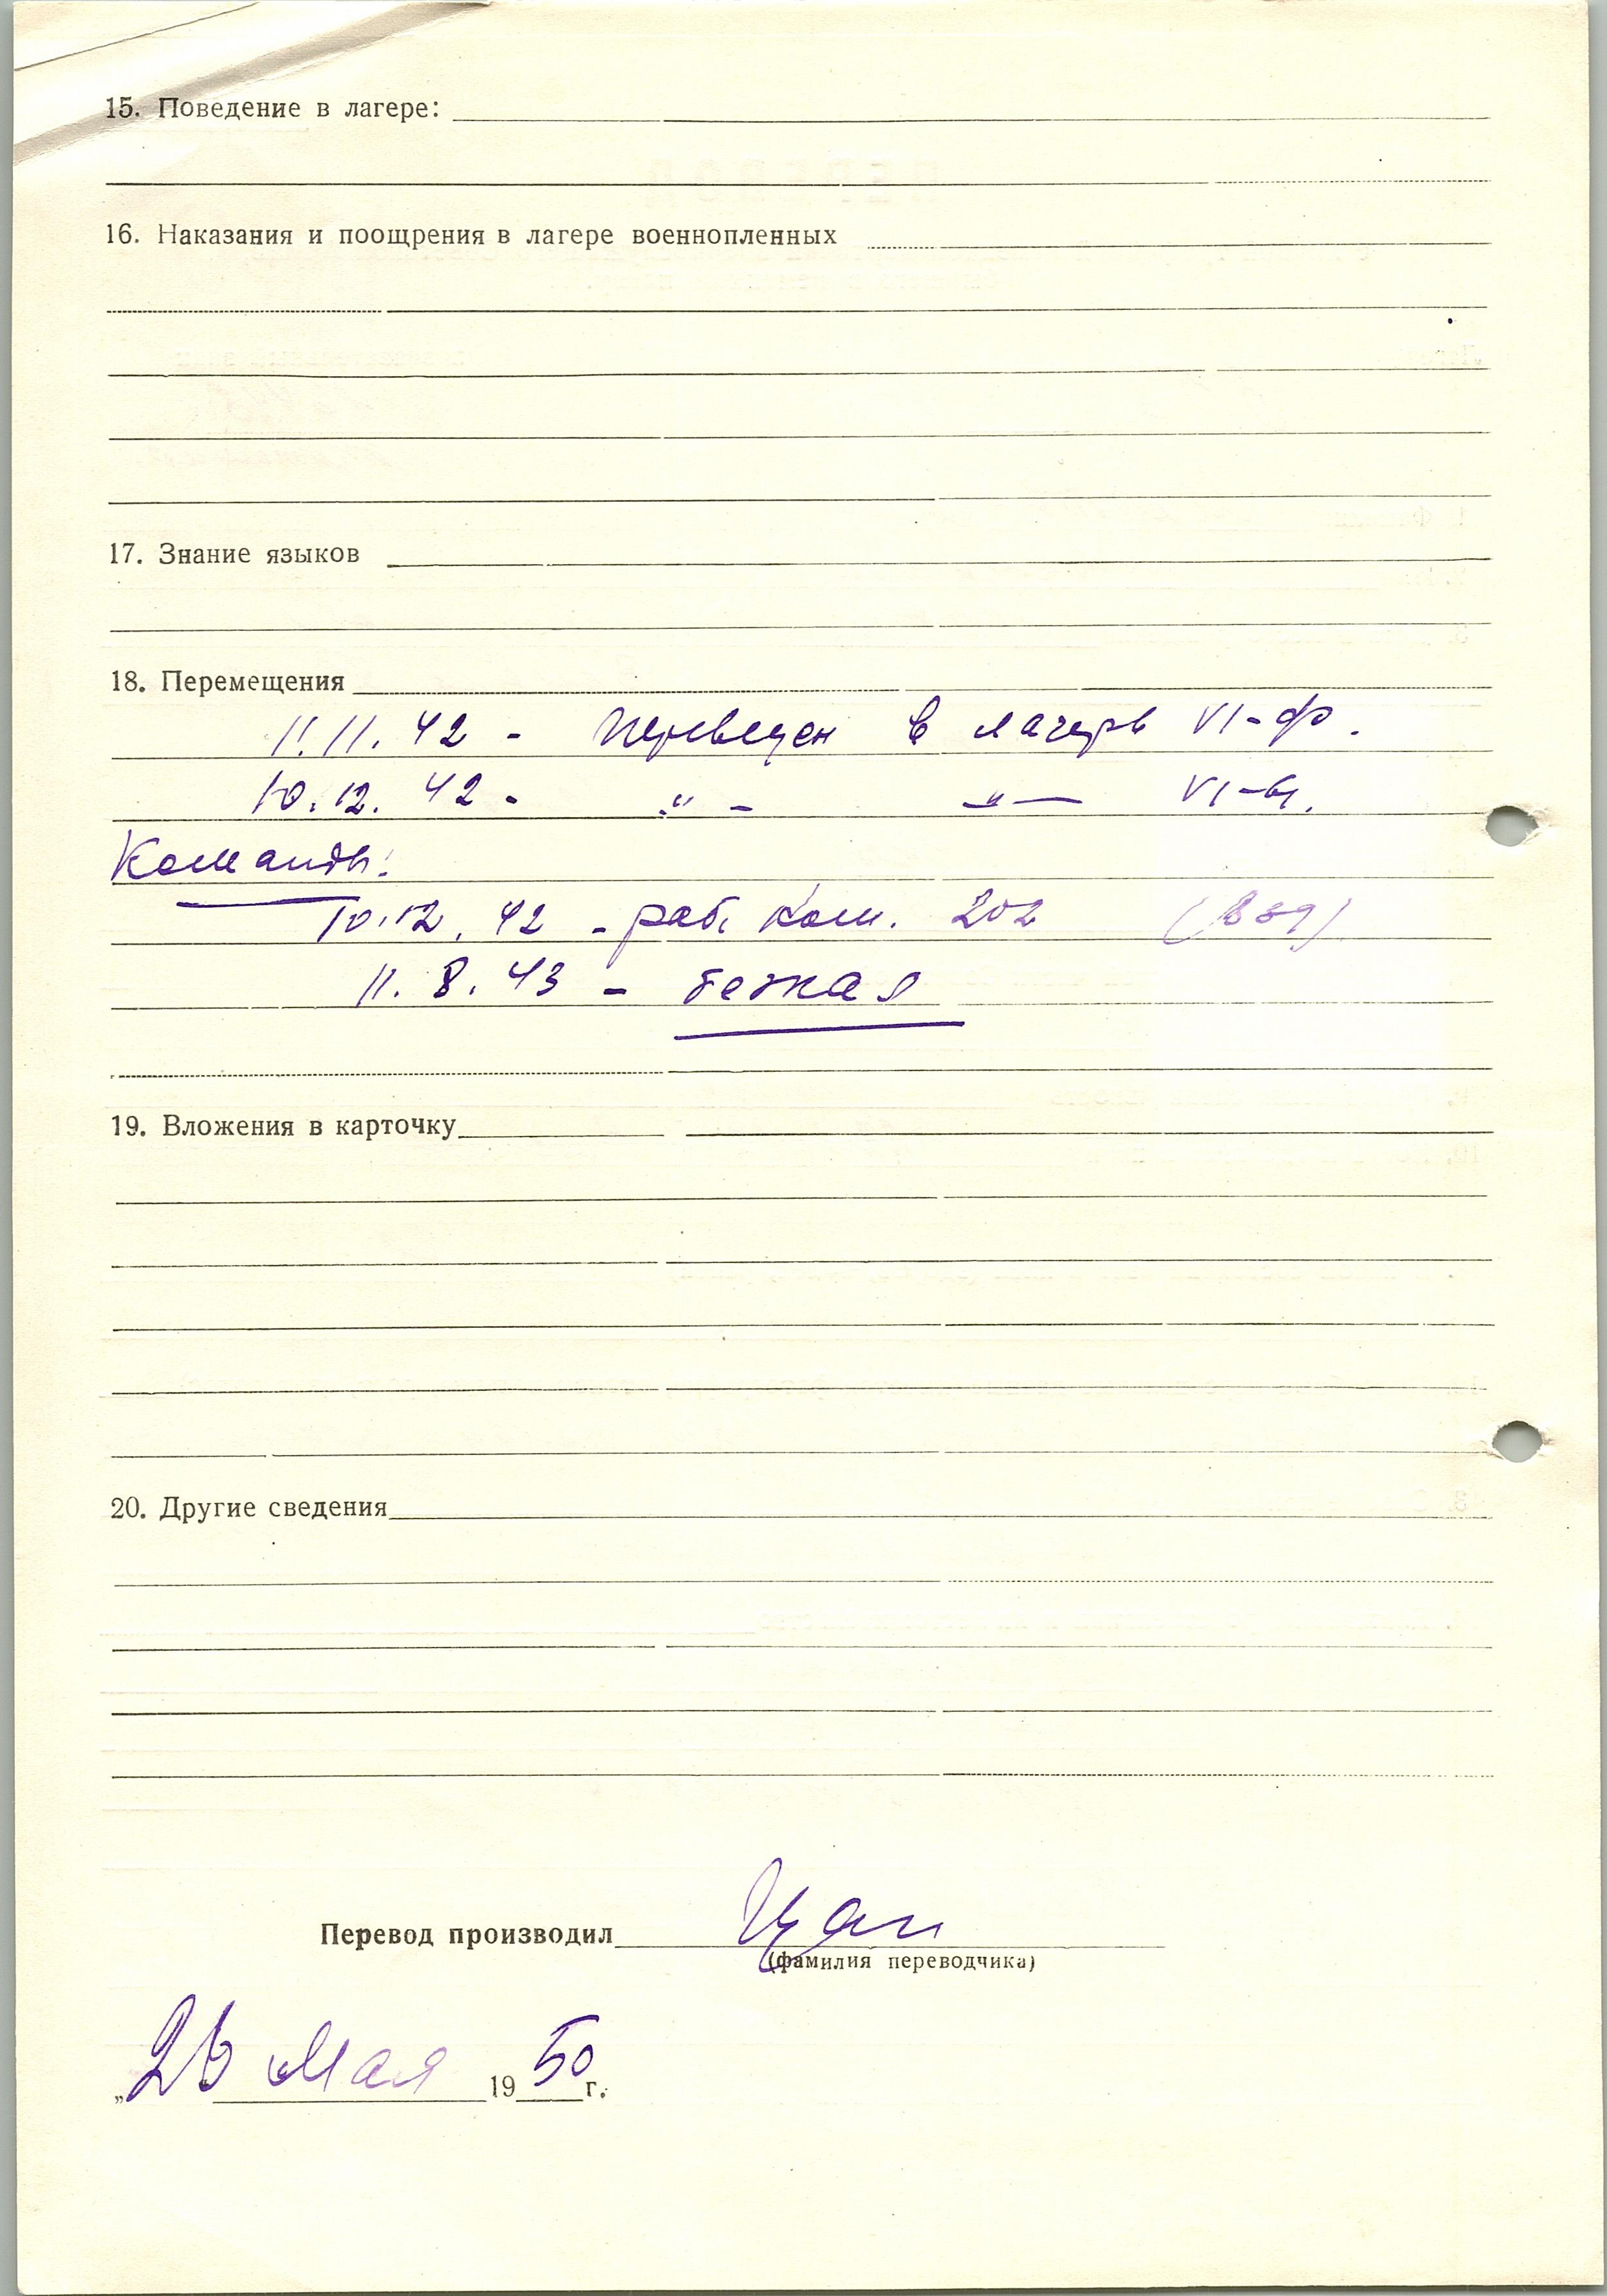 15. Поведение в лагере:
16. Наказания и поощрения в лагере военнопленных
17. Знание языков
18. Перемещения
11.11.42 - Переведен в лагерь VI-Ф.
10.12.42 - " - - " - VI-
Команды:
10.12.42 - раб. ком. 202
11.8.43 - бежал
19. Вложения в карточку
20. Другие сведения
Перевод производил
(фамилия переводчика)
„ Мая 19 50 г.